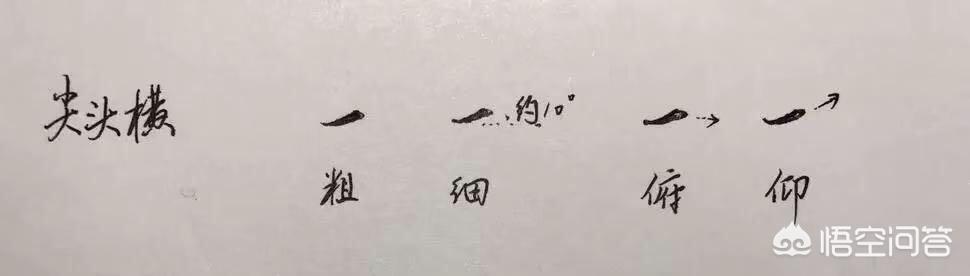 尖头横 约10°
粗 细 俯 仰
悟空问答